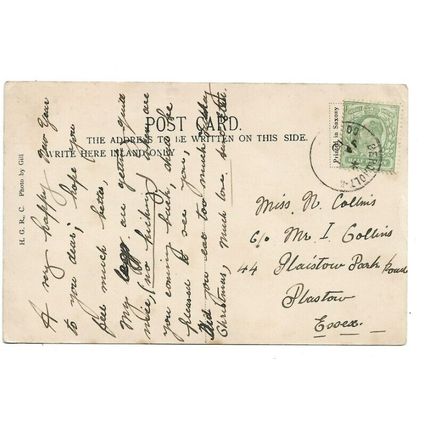 POST CARD.
THE ADDRESS TO BE WRITTEN ON THIS SIDE.
WRITE HERE INLAND ONLY.
H. G. R. C. Photo by Gill
Printed in Saxony
A very happy New Year
to you dear; hope you
feel much better,
My legs are getting quite
nice, no kicking! When are
you coming back, shall be
pleased to see you,
Did you eat too much
Christmas, much love, from
Miss N. Collins
C/o Mr I Collins
44 Plaistow Park Road
Plastow
Essex.